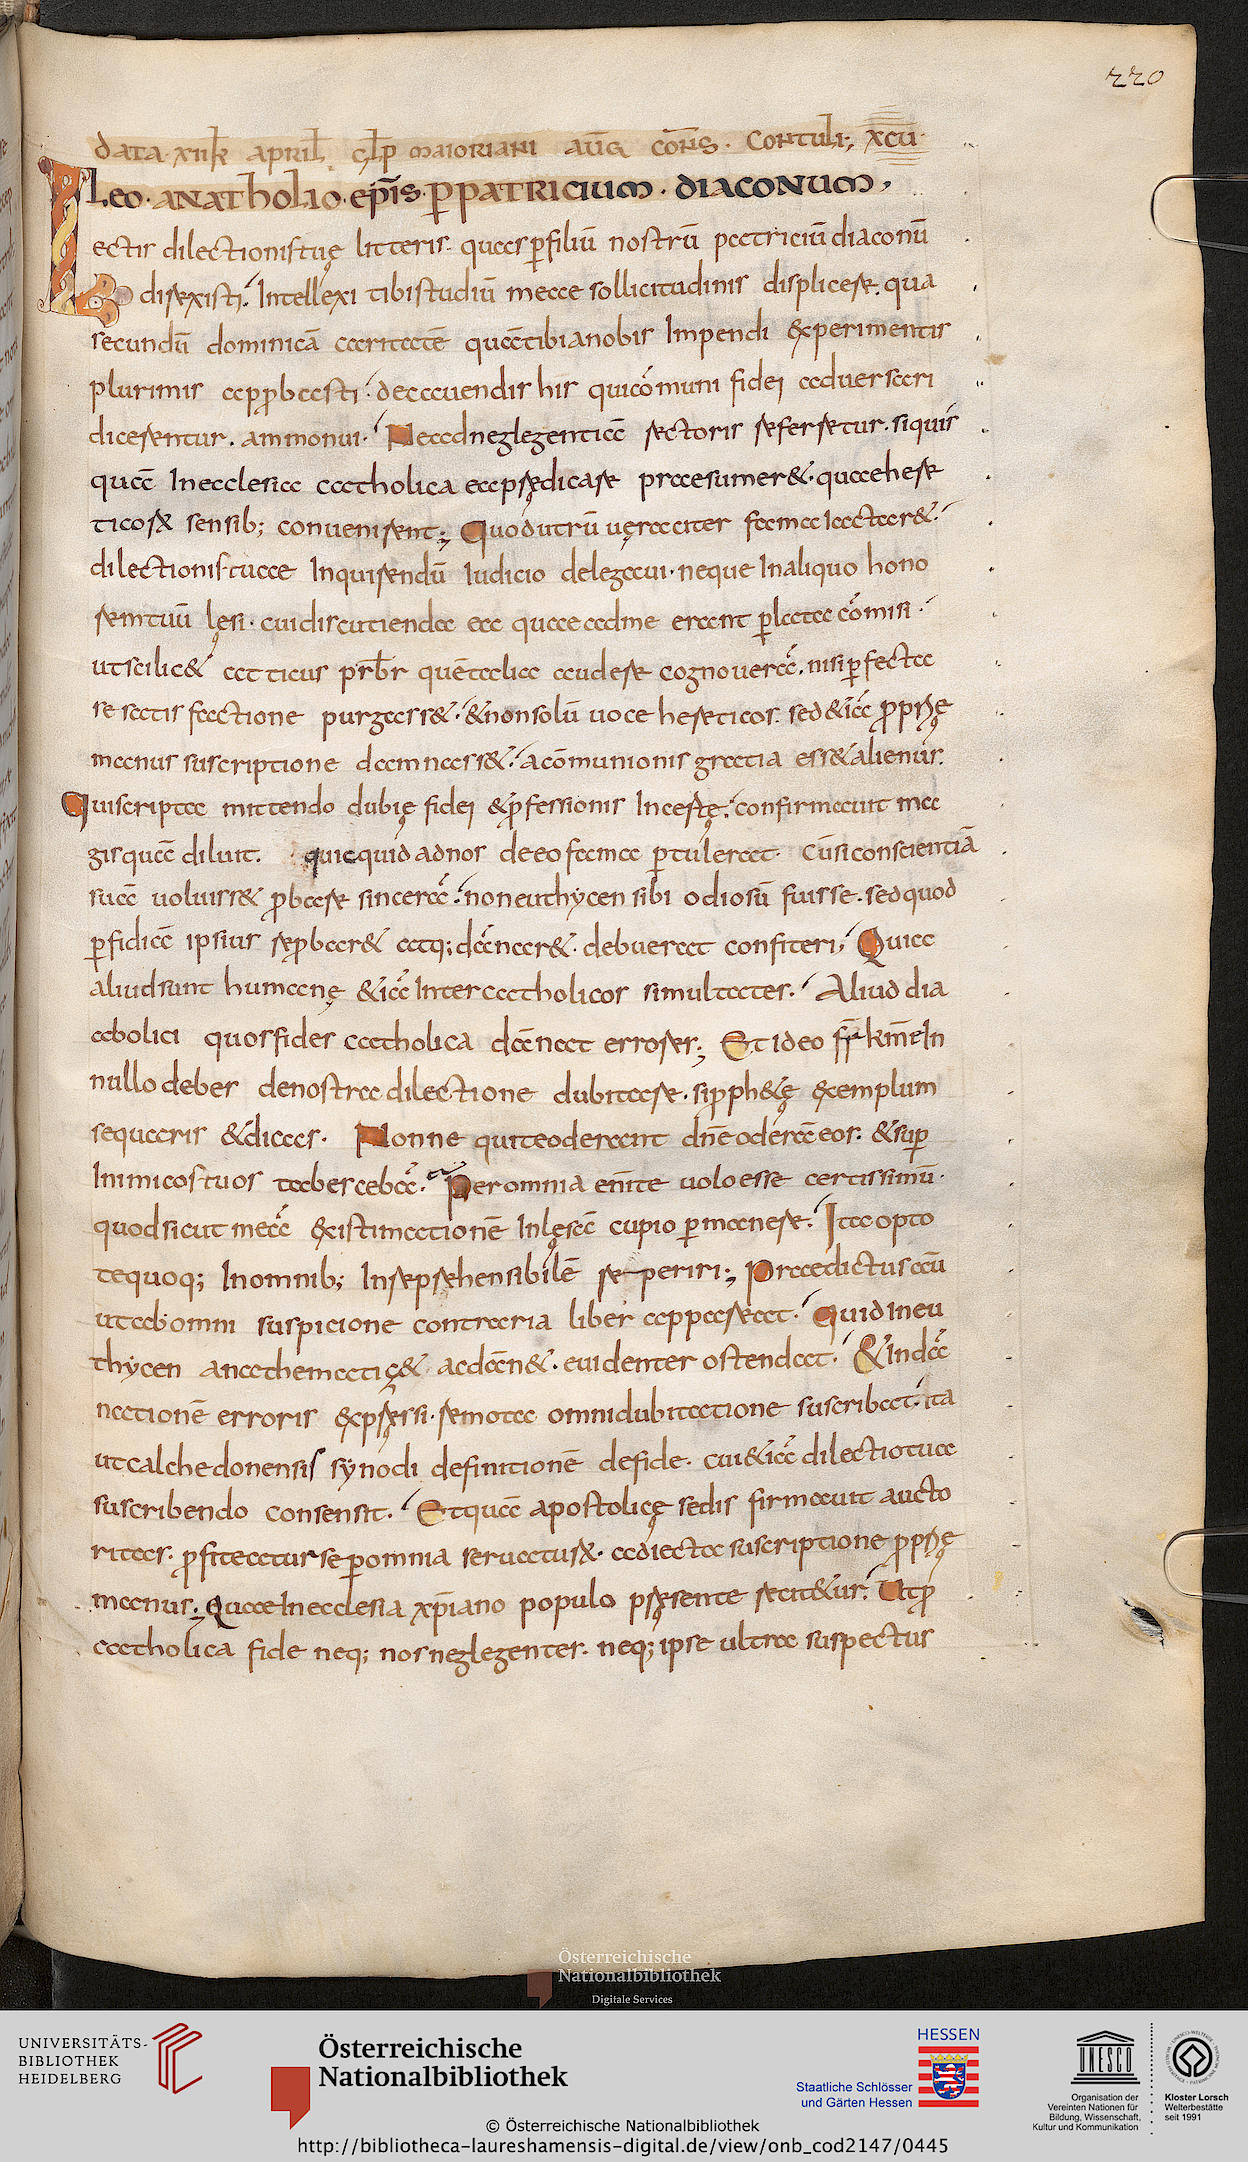 220
data · xiik april clp maioriani aūg cons̄ · Contuli; xcu ·
Leo · anatholio · ep̄is · p patricium · diaconum,
Lectis dilectionis tuę litteris · quas p filiū nostrū patriciū diaconū
direxisti · Intellexi tibi studiū meae sollicitudinis displicere · qua
secundū dominicā caritatē quā tibi a nobis Impendi experimentis
plurimis approbasti · de cauendis his qui cōmuni fidei aduersari
dicerentur · ammonui · Ne ad neglegentiā rectoris referretur · siquis
quā In ecclesia catholica ea prędicare praesumer& · quae here
ticorx sensib; convenirent; Quod utrū uęraciter fama Iactar&
dilectionis tuae Inquirendū Iudicio delegaui · neque In aliquo hono
rem tuū lęsi · cui discutienda ea quae ad me erant plata cōmisi ·
ut scilic& atticus prb̄r quē talia audere cognouerā · nisi p fecta
re satis factione purgass& · & non solū uoce hereticos · sed & iā p prię
manus suscriptione damnass& · a cōmunionis gratia ess& alienus ·
Qui scripta mittendo dubię fidei & pfessionis Incertę · confirmauit ma
gis quā diluit · quicquid ad nos de eo fama ptulerat · Cū si conscientiā
suā uoluiss& pbare sincerā · non euthycen sibi odiosū fuisse · sed quod
pfidiā ipsius reprobar& atq; dānar& · debuerat confiteri, Quia
aliud sunt humanę & iā Inter catholicos simultates · Aliud dia
abolici quos fides catholica dānat errores; Et ideo fr̄ kme In
nullo debes de nostra dilectione dubitare · si pph&ę exemplum
sequaris & dicas · Nonne qui te oderant dn̄e oderā eos · & sup
Inimicos tuos tabescebā · Per omnia enī te uolo esse certissimū ·
quod sicut meā existimationē Inlęsā cupio p manere · Ita opto
te quoq; In omnib; Inreprehensibilē reperiri; Praedictus au
ut ab omni suspicione contraria liber appareat · Quid In eu
thycen anathematiz& ac dān& · euidenter ostendat · & In dā
nationē erroris expressi · remota omni dubitatione suscribat · ita
ut calchedonensis synodi definitionē de fide · cui & iā dilectio tua
suscribendo consensit · Et quā apostolicę sedis firmauit aucto
ritas · pfiteatur se p omnia seruaturx · adiecta suscriptione pprię
manus; Quae In ecclesia xpiano populo pręsente recit&ur · Ut p
catholica fide neq; nos neglegenter · neq; ipse ultra suspectus
Österreichische
Nationalbibliothek
Digitale Services
UNIVERSITÄTS-
BIBLIOTHEK
HEIDELBERG
Österreichische
Nationalbibliothek
HESSEN
Staatliche Schlösser
und Gärten Hessen
UNESCO
Organisation der
Vereinten Nationen für
Bildung, Wissenschaft,
Kultur und Kommunikation
Kloster Lorsch
Welterbestätte
seit 1991
© Österreichische Nationalbibliothek
http://bibliotheca-laureshamensis-digital.de/view/onb_cod2147/0445